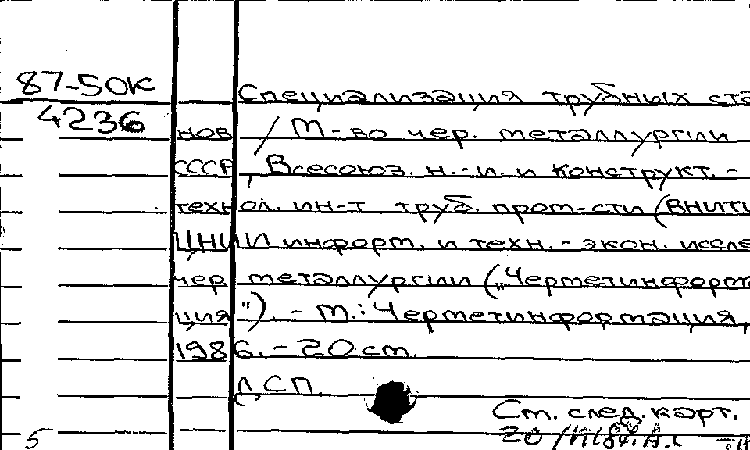 87-50К
4236
Специализация трубных ста
нов / М-во чер. металлургии
СССР, Всесоюз. н.-и. и конструкт.-
технол. ин-т труб. пром-сти (ВНИТИ
ЦНИИ информ. и техн.-экон. иссле
чер. металлургии ("Черметинформ
ция"). - М.: Черметинформация,
1986. - 20 см.
Л.СП.
См. след. карт.
5